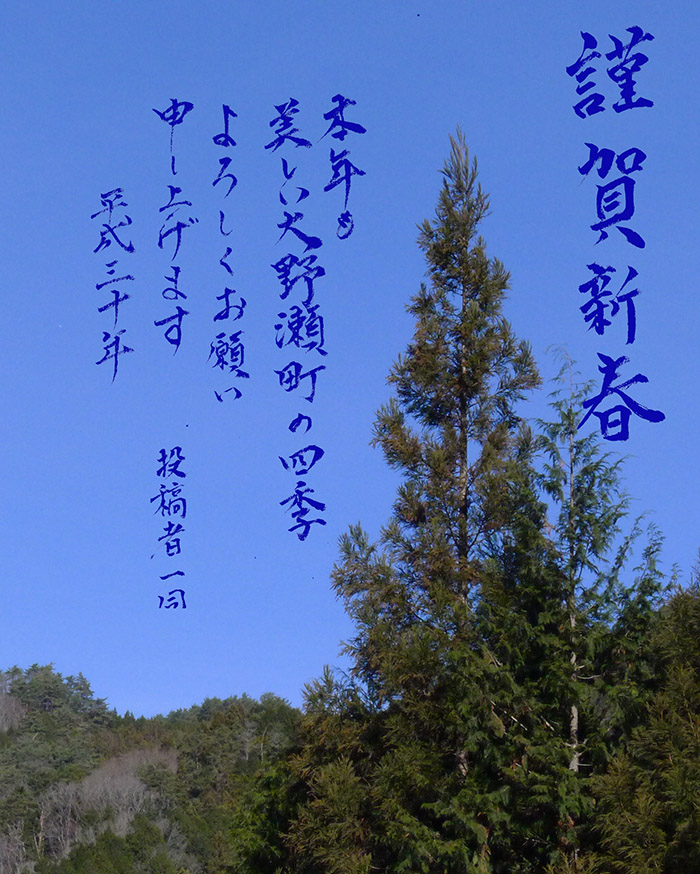 謹賀新春
本年も
美しい大野瀬町の四季
よろしくお願い
申し上げます
平成三十年
投稿者一同